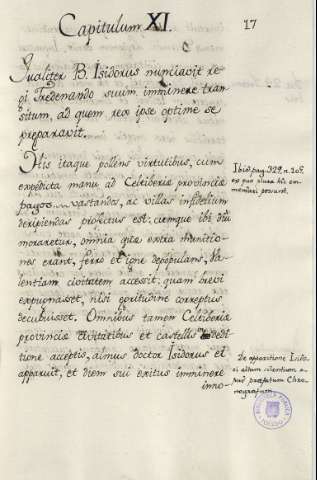 Capitulum XI.
17
Qualiter B. Isidorus nunciavit re-
gi Fredenando suum imminere tran-
situm, ad quem rex ipse optime se
preparavit.
His itaque pollens virtutibus, cum
expedita manu ad Celtiberiæ provinciæ
pagos .... vastandos, ac villas infidelium
deripiendas profectus est: cumque ibi diu
moraretur, omnia quæ extra munitio-
nes erant, ferro et igne depopulans, Va-
lentiam civitatem accessit: quam brevi
expugnasset, nisi egritudine correptus
decubuisset. Omnibus tamen Celtiberiæ
provinciæ civitatibus et castellis dedi-
tione acceptis, almus doctor Isidorus ei
apparuit, et diem sui exitus imminere
inno-
Ibid. pag. 329. n. 205.
De apparitione Isido-
ri
nographum.